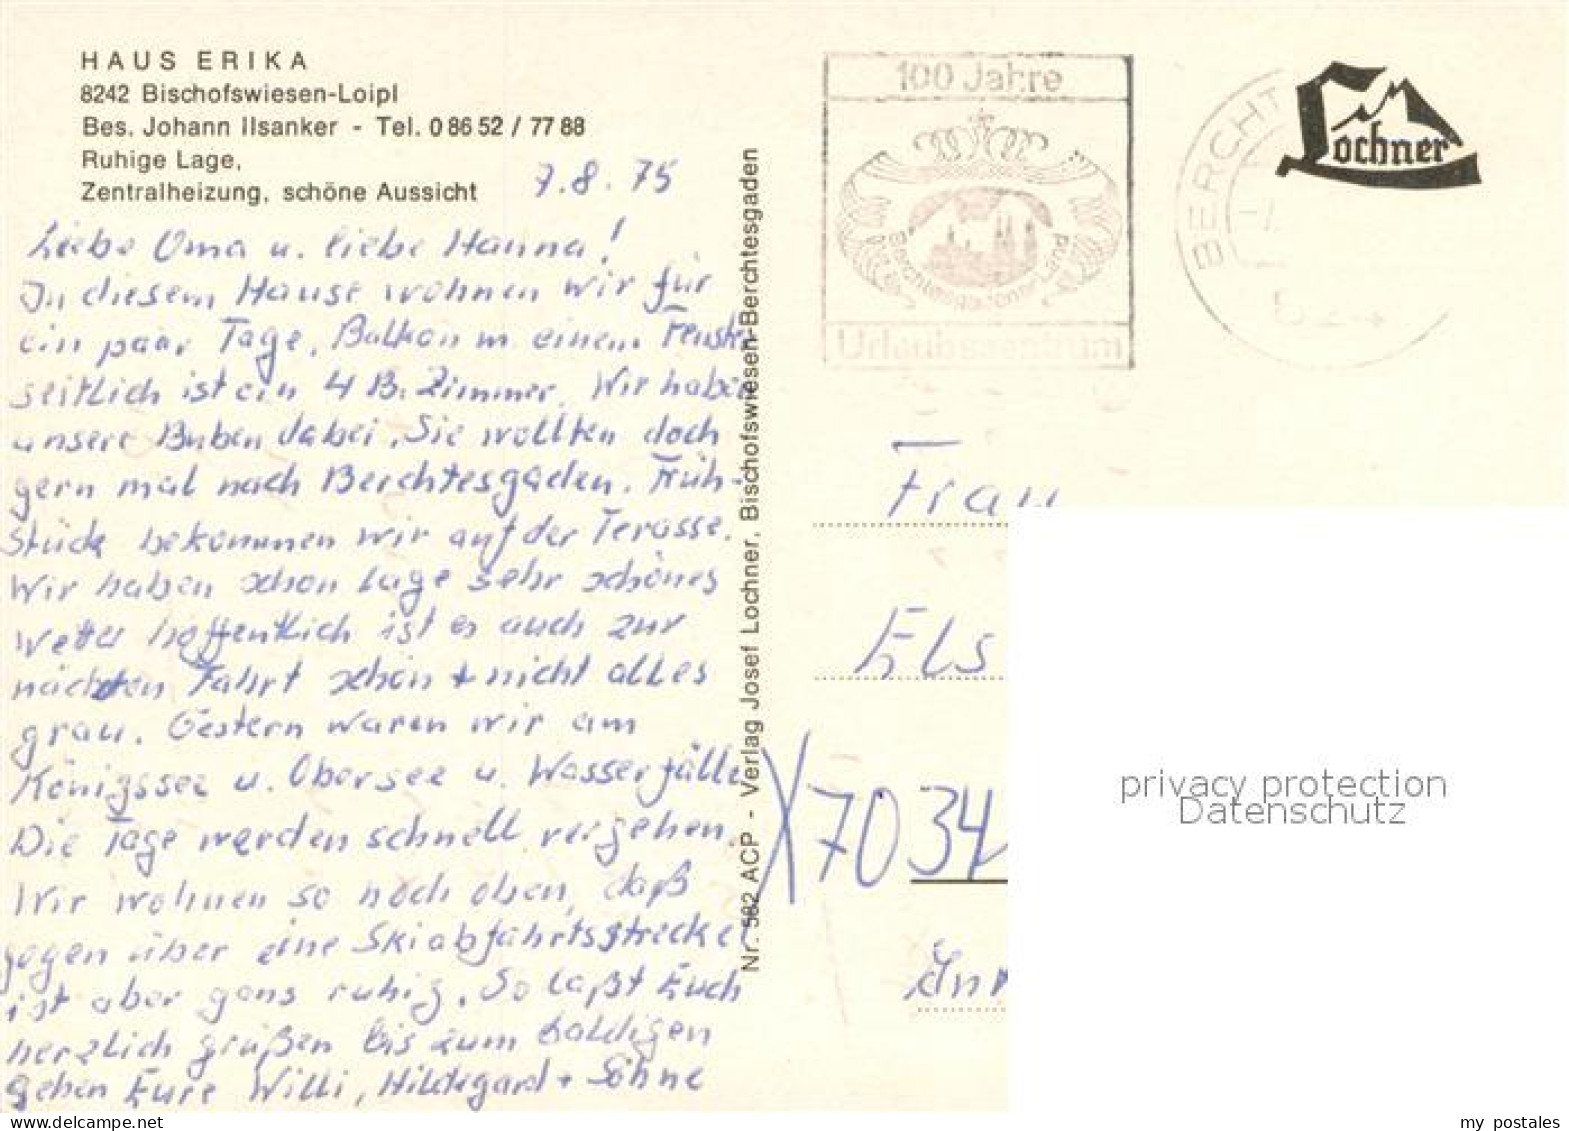 HAUS ERIKA
8242 Bischofswiesen-Loipl
Bes. Johann Ilsanker - Tel. 0 86 52 / 77 88
Ruhige Lage,
Zentralheizung, schöne Aussicht
7.8.75
Liebe Oma u. liebe Hanna!
In diesem Hause wohnen wir für
ein paar Tage, Balkon m. einem Fenster
seitlich ist ein 4 B. Zimmer. Wir haben
unsere Buben dabei. Sie wollten doch
gern mal nach Berchtesgaden. Früh-
stück bekommen wir auf der Terasse.
Wir haben schon Tage sehr schönes
Wetter hoffentlich ist es auch zur
nächsten Fahrt schön + nicht alles
grau. Gestern waren wir am
Königssee u. Obersee u. Wasserfälle
Die Tage werden schnell vergehen.
Wir wohnen so hoch oben, daß
gegen über eine Skiabfahrtsstrecke
ist aber gans ruhig. So laßt Euch
herzlich grüßen bis zum baldigen
Sehen Eure Willi, Hildegard + Söhne
Nr. 582 ACP - Verlag Josef Lochner, Bischofswiesen-Berchtesgaden
100 Jahre
Berchtesgadener Land
Urlaubszentrum
BERCHT
Lochner
Frau
Els
X7034
privacy protection
Datenschutz
www.delcampe.net
my_postales